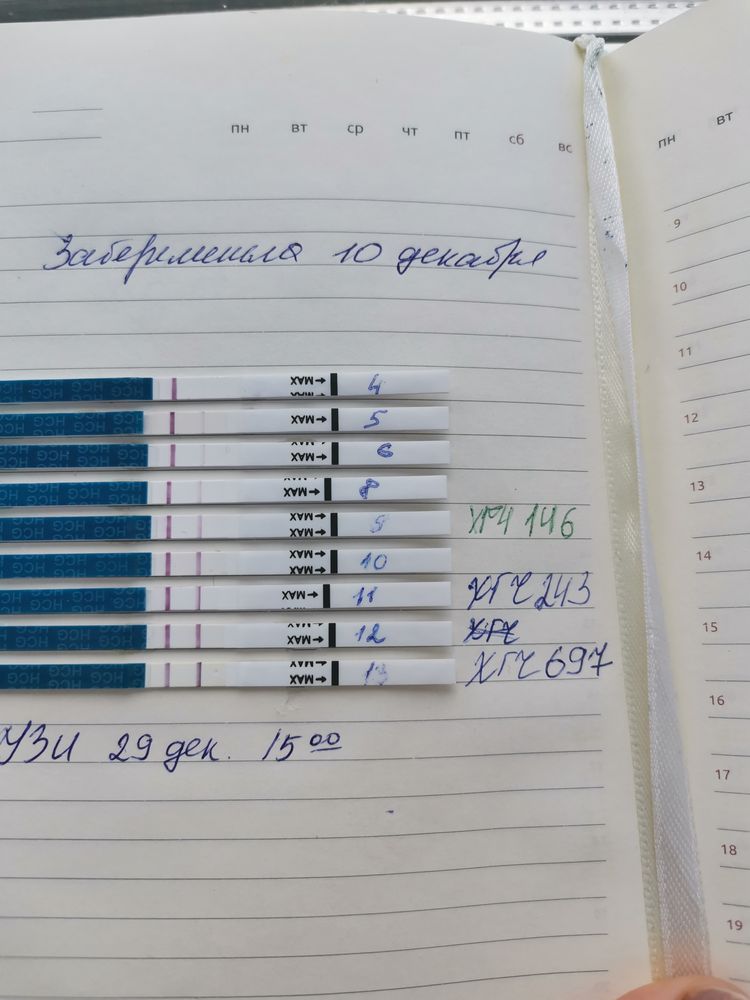 пн вт ср чт пт сб вс
пн вт
Забеременела 10 декабря
HCG HCG HCG MAX 4
HCG HCG HCG MAX 5
HCG HCG HCG MAX 6
HCG HCG HCG MAX 8
HCG HCG HCG MAX 9 ХГЧ 146
HCG HCG HCG MAX 10
HCG HCG HCG MAX 11 ХГЧ 243
HCG HCG HCG MAX 12 ХГЧ
HCG HCG HCG MAX 13 ХГЧ 697
УЗИ 29 дек. 15 00
9
10
11
12
13
14
15
16
17
18
19